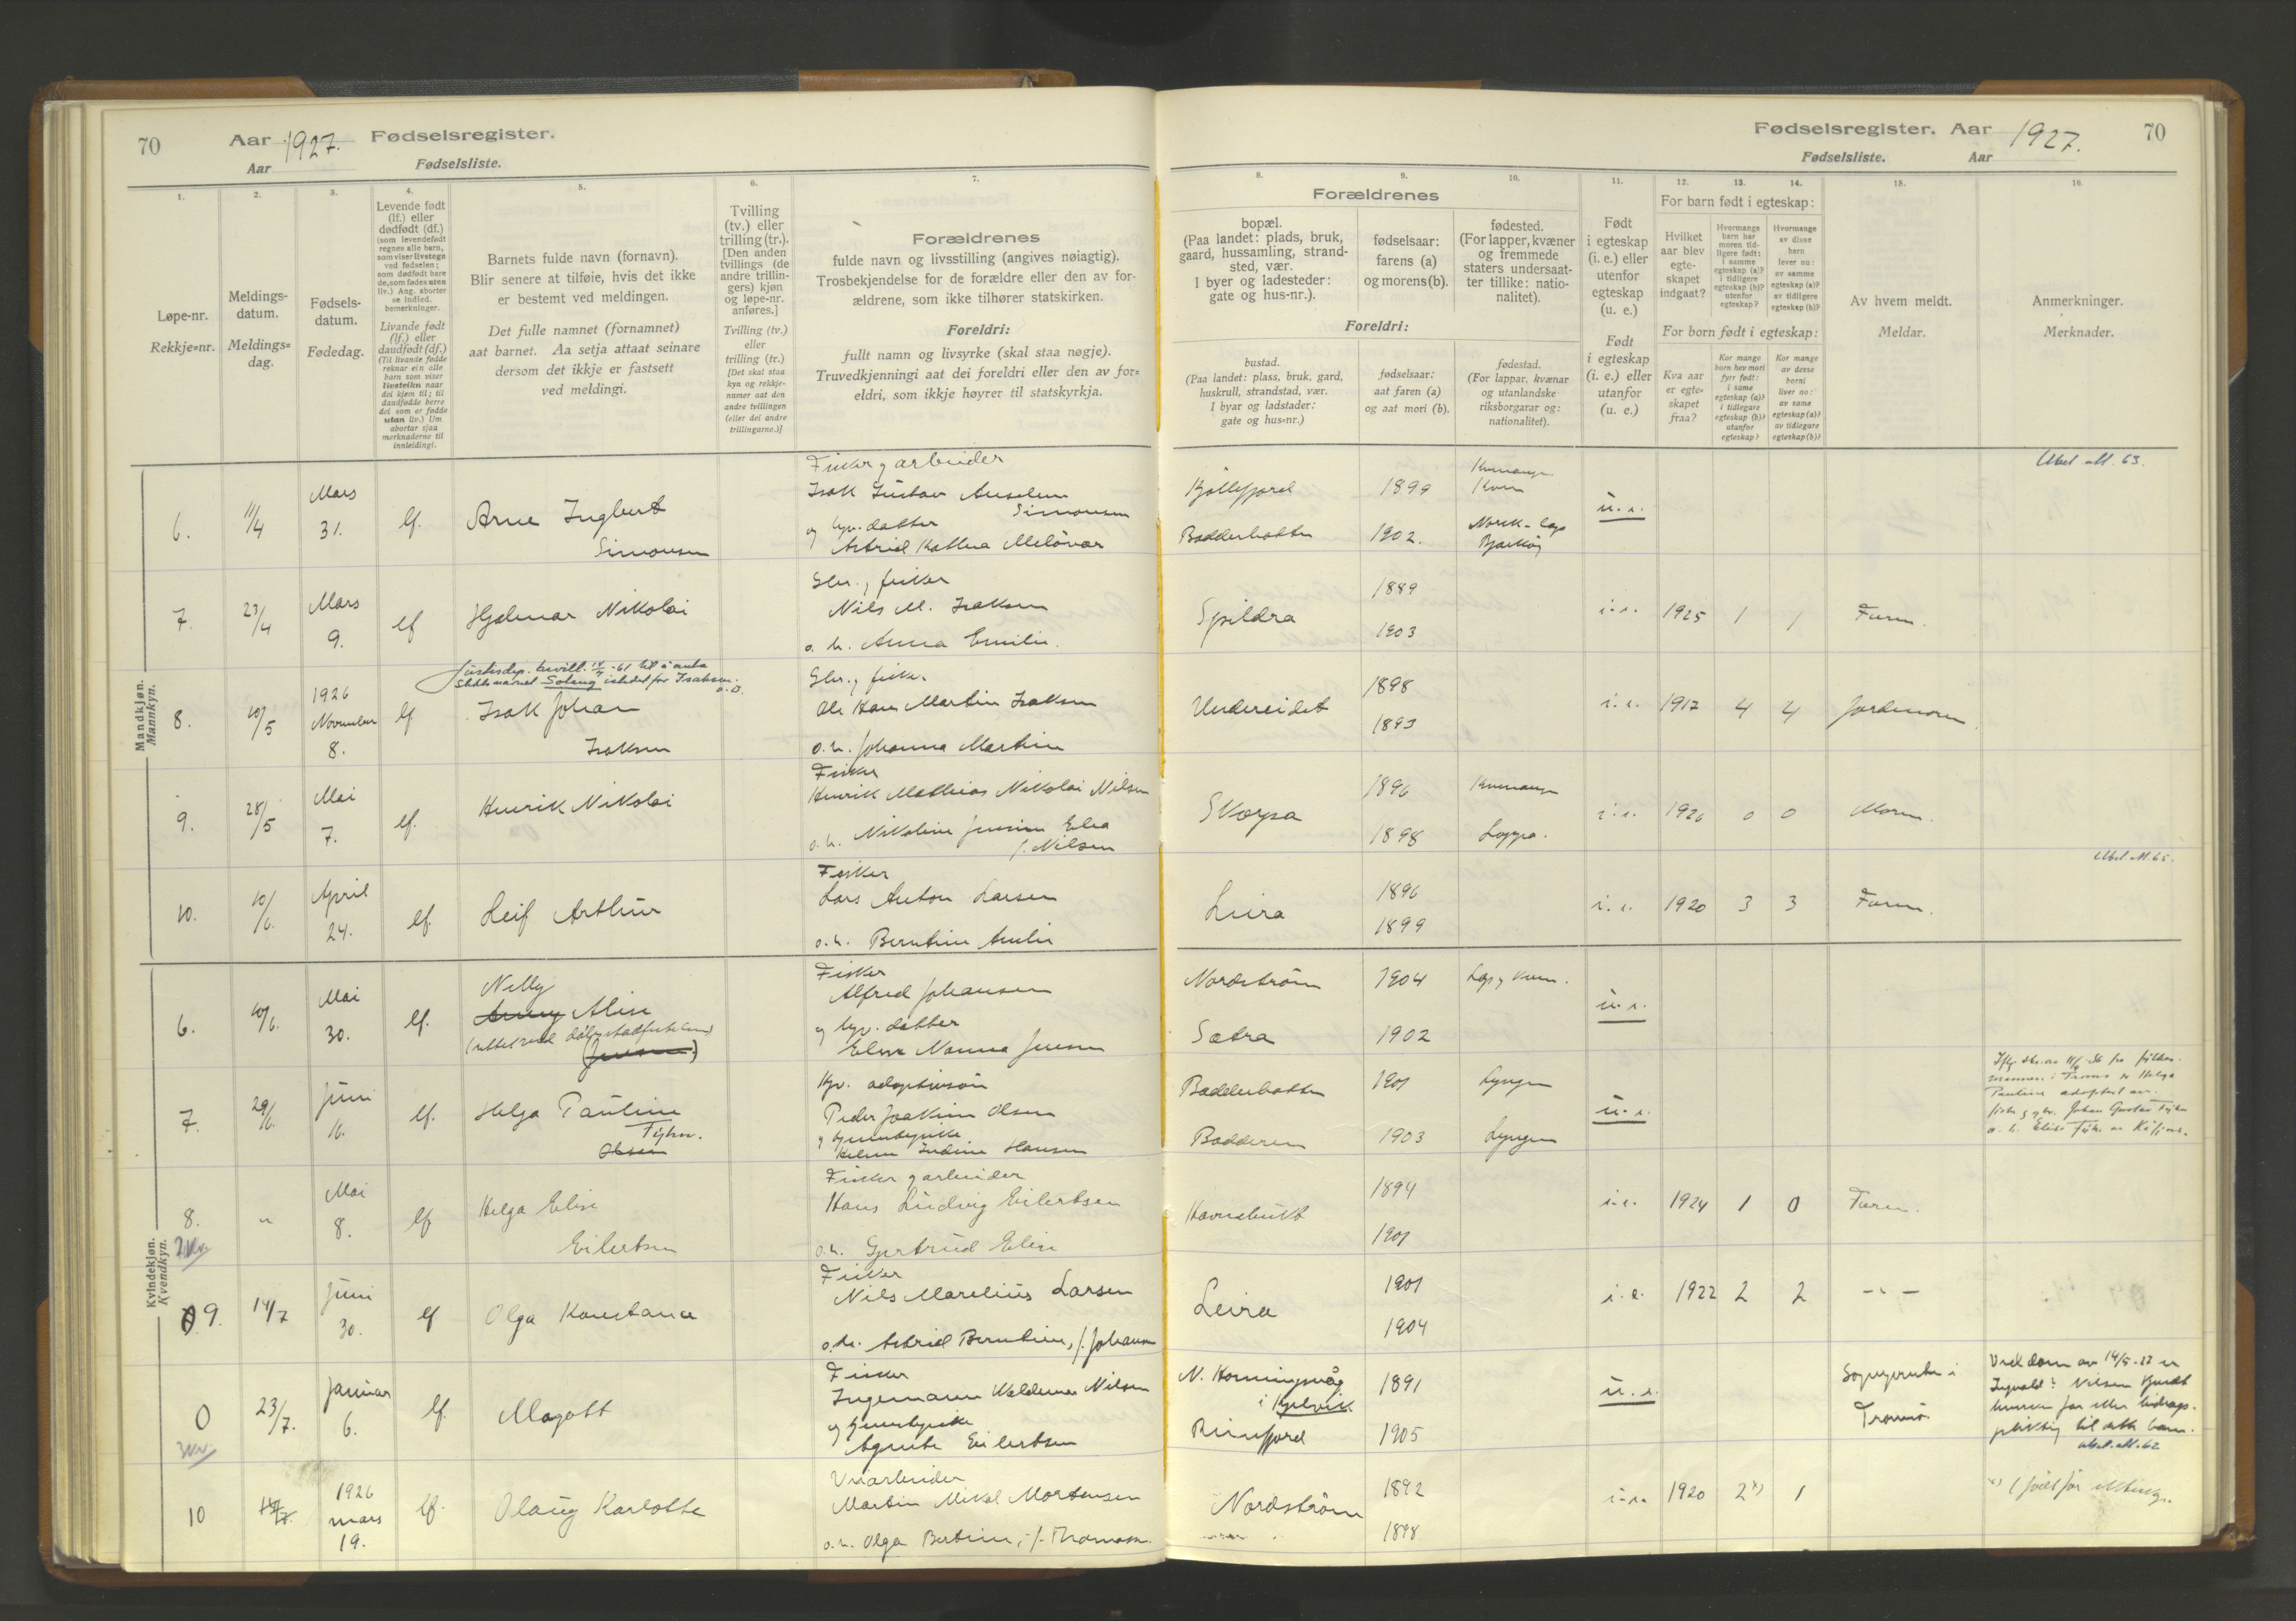 70 Aar 1927. Fødselsregister.
Aar Fødselsliste.
1. 2. 3. 4. 5. 6. 7.
Løpe-nr.
Rekkje=nr.
Meldings-
datum.
Meldings=
dag.
Fødsels-
datum.
Fødedag.
Levende født
(lf.) eller
dødfødt (df.)
(som levendefødt
regnes alle barn,
som viser livstegn
ved fødselen;
som dødfødt bare
de, som fødes uten
liv.) Ang. aborter
se indled.
bemerkninger.
Livande født
(lf.) eller
daudfødt (df.)
(Til livande fødde
reknar ein alle
barn som viser
livsteikn naar
dei kjem til; til
daudfødde berre
dei som er fødde
utan liv.) Um
abortar sjaa
merknaderne til
innleidingi.
Barnets fulde navn (fornavn).
Blir senere at tilføie, hvis det ikke
er bestemt ved meldingen.
Det fulle namnet (fornamnet)
aat barnet. Aa setja attaat seinare
dersom det ikkje er fastsett
ved meldingi.
Tvilling
(tv.) eller
trilling (tr.).
[Den anden
tvillings (de
andre trillin-
gers) kjøn
og løpe-nr.
anføres.]
Tvilling (tv.)
eller
trilling (tr.)
[Det skal staa
kyn og rekkje-
numer aat den
andre tvillingen
(eller dei andre
trillingarne.)]
Forældrenes
fulde navn og livsstilling (angives nøiagtig).
Trosbekjendelse for de forældre eller den av for-
ældrene, som ikke tilhører statskirken.
Foreldri:
fullt namn og livsyrke (skal staa nøgje).
Truvedkjenningi aat dei foreldri eller den av for=
eldri, som ikkje høyrer til statskyrkja.
Mandkjøn.
Mannkyn.
6. 11/4 Mars 31. lf. Arne Ingbert
Simonsen
Fisker og arbeider
Isak Gustav Anselm
Simonsen
og gv. datter
Astrid
7. 23/4 Mars 9. lf Hjalmar Nikolai
Gbr., fisker
Nils M. Isaksen
o. h. Anna Emilie.
Justisdep. bevill. -61 til å anta
Slektsnavnet Soleng istedet for Isaksen.
8. 10/5 1926 November 8. lf Isak Johan
Isaksen
Gbr., fisker
Ole Hans Martin Isaksen
o. h. Johanna Martine
9. 28/5 Mai 7. lf. Henrik Nikolai
Fisker
Henrik Mathias Nikolai Nilsen
o. h. Nikoline Jensine Elea
f. Nilsen
10. 10/6. April 24. lf. Leif Arthur
Fisker
Lars Anton Larsen
o. h. Berntine Amlie
Kvindekjøn.
Kvendkyn.
6. 10/6. Mai 30. lf. Nelly
Alise
(rettet ved
(Jensen)
Fisker
Alfred Johansen
og gv. datter
Elise Nanna Jensen
7. 29/6. Juni 16. lf. Helga Pauline
Fyhn.
Olsen
Gv. adoptivsøn
Peder Joakim Olsen
Hansen
8. " Mai 8. lf Helga Elise
Eilertsen
Fisker og arbeider
Hans Ludvig Eilertsen
o. h. Gjertrud Elise
9. 14/7 Juni 30. lf Olga Konstanse
Fisker
Nils Marelius Larsen
o. h. Astrid Berntine, f. Johansen
0 23/7. Januar 6. lf. Magott
Fisker
Ingemann Waldemar Nilsen
Agnete Eilertsen
10 1926 mars 19. lf. Olaug Karlotte
Martin Mikal Mortensen
o. h. Olga Bertine, f. Thomassen.
Fødselsregister. Aar 1927. 70
Fødselsliste. Aar
8. 9. 10. 11. 12. 13. 14. 15. 16.
Forældrenes
bopæl.
(Paa landet: plads, bruk,
gaard, hussamling, strand-
sted, vær.
I byer og ladesteder:
gate og hus-nr.).
fødselsaar:
farens (a)
og morens (b).
fødested.
(For lapper, kvæner
og fremmede
staters undersaat-
ter tillike: natio-
nalitet).
Foreldri:
bustad.
(Paa landet: plass, bruk, gard,
huskrull, strandstad, vær.
I byar og ladstader:
gate og hus=nr.)
fødselsaar:
aat faren (a)
og aat mori (b).
fødestad.
(For lappar, kvænar
og utanlandske
riksborgarar og:
nationalitet).
Født
i egteskap
(i. e.) eller
utenfor
egteskap
(u. e.)
Født
i egteskap
(i. e.) eller
utanfor
(u. e.)
For barn født i egteskap:
Hvilket
aar blev
egte-
skapet
indgaat?
Hvormange
barn har
moren tid-
ligere født:
i samme
egteskap (a)?
i tidligere
egteskap (b)?
utenfor
egteskap?
Hvormange
av disse
barn
lever nu:
av samme
egteskap (a)?
av tidligere
egteskap (b)?
For born født i egteskap:
Kva aar
er egte-
skapet
fraa?
Kor mange
born hev mori
fyrr født:
i same
egteskap (a)?
i tidlegare
egteskap (b)?
utanfor
egteskap?
Kor mange
av desse
borni
liver no:
av same
egteskap (a)?
av tidlegare
egteskap (b)?
Av hvem meldt.
Meldar.
Anmerkninger.
Merknader.
Utst. att. 63.
Kjøllefjord 1899 Kvænangen
Kvæn
u. e.
Badderbotten 1902. Norsk-lapp
Bjarkøy
1889
Spildra i. e. 1925 1 1 Faren.
1903
1898
Undereidet i. e. 1917 4 4 Jordmoren.
1893
1896 Kvænangen
Skorpa i. e. 1926 0 0 Moren.
1898 Loppa.
Utst. att. 65.
1896
Leira i. e. 1920 3 3 Faren.
1899
Nordstrøm 1904 Lapp, kvæn.
u. e.
Sætra 1902
Badderbotten 1901 Lyngen
u. e.
Badderen 1903 Lyngen
mannen i Troms er Helga
Pauline adoptert av
Johan Gustav Fyhn
1894
i. e. 1924 1 0 Faren.
1901
1901
Leira i. e. 1922 2 2 -"-
1904
N. Honningsvåg 1891
i Kjelvik
u. e.
Sognepresten i
Tromsø.
Burfjord 1905
Ved dom av 14/5-27 er
Nilsen kjendt
bidrags-
pliktig til dette barn.
Utst. att. 62
1892
Nordstrøm i. e. 1920 2 x) 1
1898
x) 1 født før ekteskap.